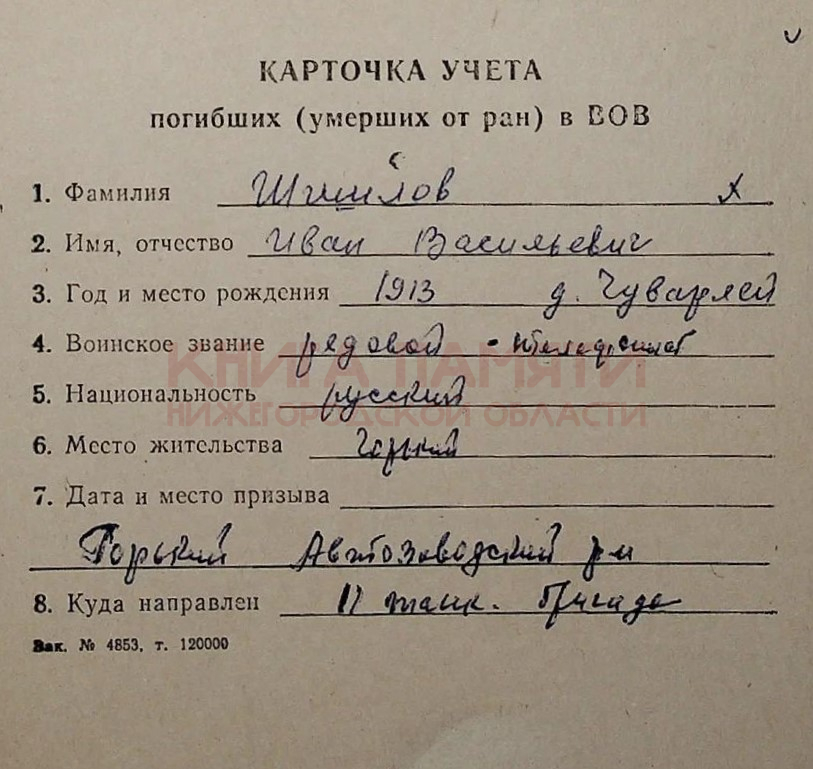 КАРТОЧКА УЧЕТА
погибших (умерших от ран) в ВОВ
1. Фамилия Шишлов
2. Имя, отчество Иван Васильевич
3. Год и место рождения 1913 д. Чуварлей
4. Воинское звание рядовой - телефонист
КНИГА ПАМЯТИ
5. Национальность русский
НИЖЕГОРОДСКОЙ ОБЛАСТИ
6. Место жительства Горький
7. Дата и место призыва
Горький Автозаводский рн
8. Куда направлен 11 танк. бригада
Зак. № 4853, т. 120000